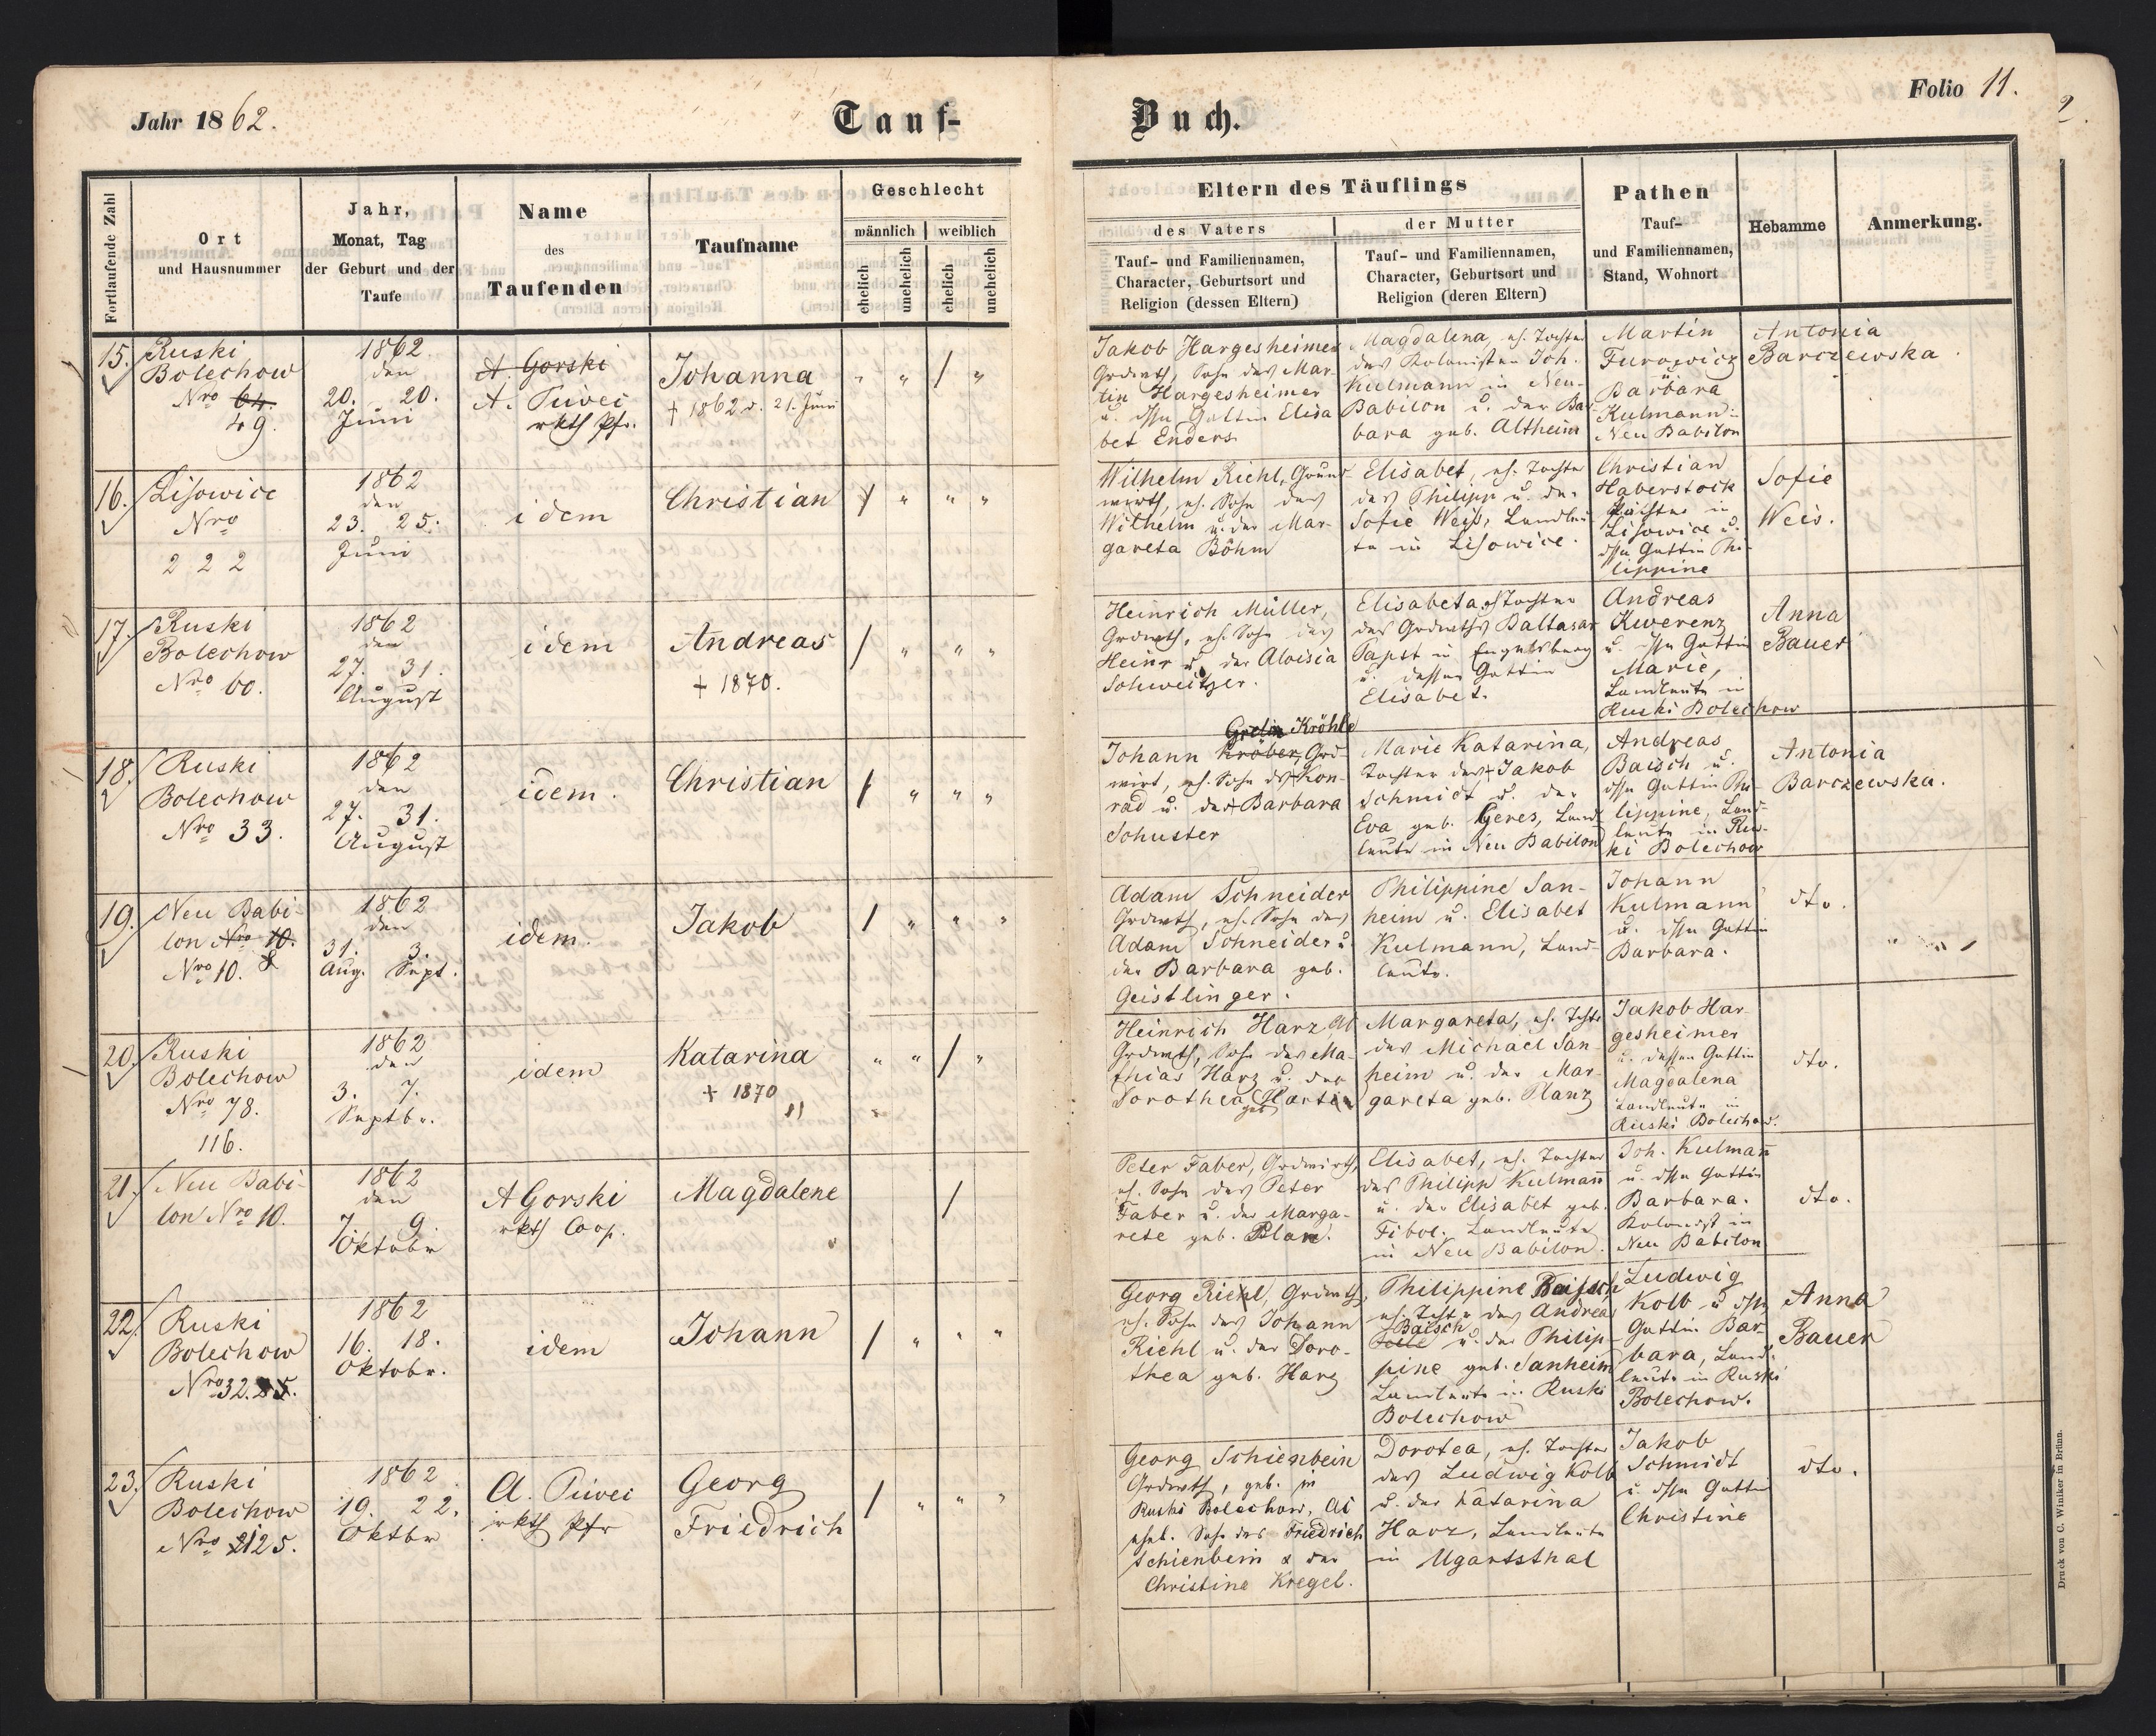 Jahr 1862.
Tauf-
Buch.
Folio 11.
Fortlaufende Zahl
Ort
und Hausnummer
Jahr,
Monat, Tag
der Geburt und der
Taufe
Name
des
Taufenden
Taufname
Geschlecht
männlich
weiblich
ehelich
unehelich
ehelich
unehelich
Eltern des Täuflings
des Vaters
Tauf- und Familiennamen,
Character, Geburtsort und
Religion (dessen Eltern)
der Mutter
Tauf- und Familiennamen,
Character, Geburtsort und
Religion (deren Eltern)
Pathen
Tauf-
und Familiennamen,
Stand, Wohnort
Hebamme
Anmerkung.
15.
Ruski
Bolechow
Nro 64.
49.
1862
den
20. 20.
Juni
A. Gorski
A. Piwei
rkth Pfr.
Johanna
+ 1862 d. 21. Juni
" " / "
Jakob Hargesheimer
Grdwth, Sohn des Mar-
tin Hargesheimer
u. dssn Gattin Elisa
bet Enders
Magdalena, eh. Tochter
des Kolonisten Joh.
Kulmann in Neu-
Babilon u. der Bar
bara geb. Altheim
Martin
Furowicz
Barbara
Kulmann
Neu Babilon
Antonia
Barczewska.
16.
Lisowice
Nro
222
1862
den
23. 25.
Juni
idem
Christian
/ " " "
Wilhelm Riehl, Grund-
wirth, eh. Sohn des
Wilhelm u. der Mar-
gareta Böhm
Elisabet, eh. Tochter
des Philipp u. der
Sofie Weiß, Landleu
te in Lisowice.
Christian
Haberstock
Pächter in
Lisowice u.
dssn Gattin Phi-
lippine
Sofie
Weis.
17.
Ruski
Bolechow
Nro 60.
1862
den
27. 31.
August
idem
Andreas
+ 1870.
/ " " "
Heinrich Müller,
Grdwth, eh. Sohn des
Heinr u. der Aloisia
Schweitzer.
Elisabeta, eh Tochter
des Grdwths Baltasar
Papst in Engelsberg
u. dessen Gattin
Elisabet.
Andreas
Kwerenz
u. dssn Gattin
Marie,
Landleute in
Ruski Bolechow
Anna
Bauer
18.
Ruski
Bolechow
Nro 33.
1862
den
27. 31.
August
idem.
Christian
/ " " "
Kröhle
Johann Kröber, Grd-
wirt, eh. Sohn des + Kon-
rad u. der + Barbara
Schuster
Marie Katarina,
Tochter des + Jakob
Schmidt u. der
Eva geb. Geres, Land
leute in Neu Babilon
Andreas
Baisch u.
dssn Gattin Phi-
lippine, Land-
leute in Rus-
ki Bolechow
Antonia
Barczewska.
19.
Neu Babi-
lon Nro 10.
Nro 10. 8
1862
den
31. 3.
Aug. Sept.
idem.
Jakob
/ " " "
Adam Schneider
Grdwth, eh. Sohn des
Adam Schneider u.
der Barbara geb.
Geistlinger.
Philippine San-
heim u. Elisabet
Kulmann, Land-
leute.
Johann
Kulmann
u. dssn Gattin
Barbara.
dto.
20.
Ruski
Bolechow
Nro 78.
116.
1862
den
3. 7.
Septbr.
idem
Katarina
+ 1870
" " / "
Heinrich Harz,
Grdwth, Sohn des Ma-
thias Harz u. der
Dorothea geb
Margareta, eh. Tcht
des Michael San-
heim u. der Mar-
gareta geb. Planz
Jakob Har
gesheimer
u. dessen Gattin
Magdalena
Landleute in
Ruski Bolechow.
dto.
21.
Neu Babi-
lon Nro 10.
1862
den
7. 9.
Oktobr
A Gorski
rkth Coop.
Magdalene
/
Peter Faber, Grdwirth,
eh. Sohn des Peter
Faber u. der Marga-
rete geb.
Elisabet, eh. Tochter
des Philipp Kulmañ
u. der Elisabet geb.
Fibol. Landleute
in Neu Babilon.
Joh. Kulmañ
u. dssn Gattin
Barbara.
Kolonist in
Neu Babilon
dto.
22.
Ruski
Bolechow
Nro 32.
1862
16. 18.
Oktobr.
idem
Johann
/ " " "
Georg Riehl, Grdwth,
eh. Sohn des Johann
Riehl u. der Doro-
thea geb. Harz
Philippine Baisch
eh. Tcht des Andreas
Baisch
u. der Philip-
pine geb. Sanheim
Landleute in Ruski
Bolechow
Ludwig
Kolb u dssn
Gattin Bar-
bara, Land-
leute in Ruski
Bolechow.
Anna
Bauer
23.
Ruski
Bolechow
Nro 125.
1862
19. 22.
Oktbr
A. Piwei
rkth Pfr
Georg
Friedrich
/ " " "
Georg Schienbein
Grdwth, geb. in
Ruski Bolechow,
ehel. Sohn des Friedrich
Schienbein & der
Christine Kregel.
Dorotea, eh. Tochter
des Ludwig Kolb
u. der Katarina
Harz, Landleute
in Ugartsthal
Jakob
Schmidt
u dssn Gattin
Christine
dto.
Druck von C. Winiker in Brünn.